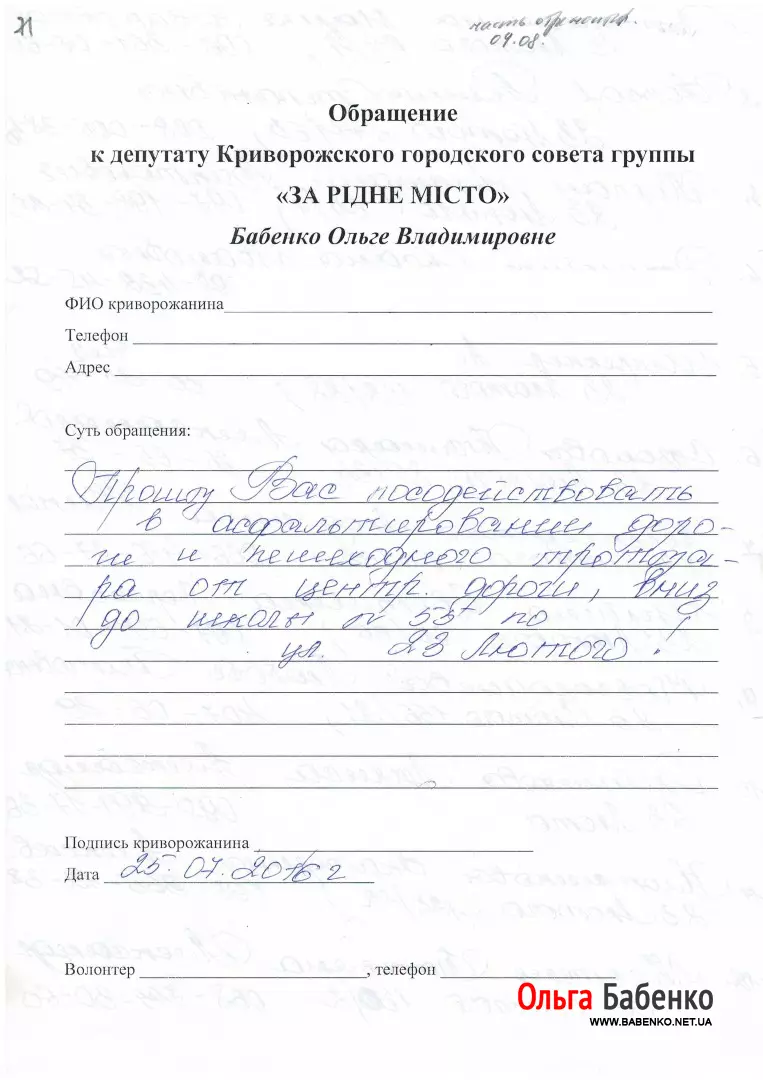 часть отремонтир.
09.08.
Обращение
к депутату Криворожского городского совета группы
«ЗА РІДНЕ МІСТО»
Бабенко Ольге Владимировне
ФИО криворожанина
Телефон
Адрес
Суть обращения:
Прошу Вас посодействовать
в асфальтировании доро-
ги и пешеходного тротуа-
ра от центр. дороги, вниз
до школы № 55 по
ул. 23 Лютого!
Подпись криворожанина
Дата 25.07.2016 г
Волонтер , телефон
Ольга Бабенко
WWW.BABENKO.NET.UA